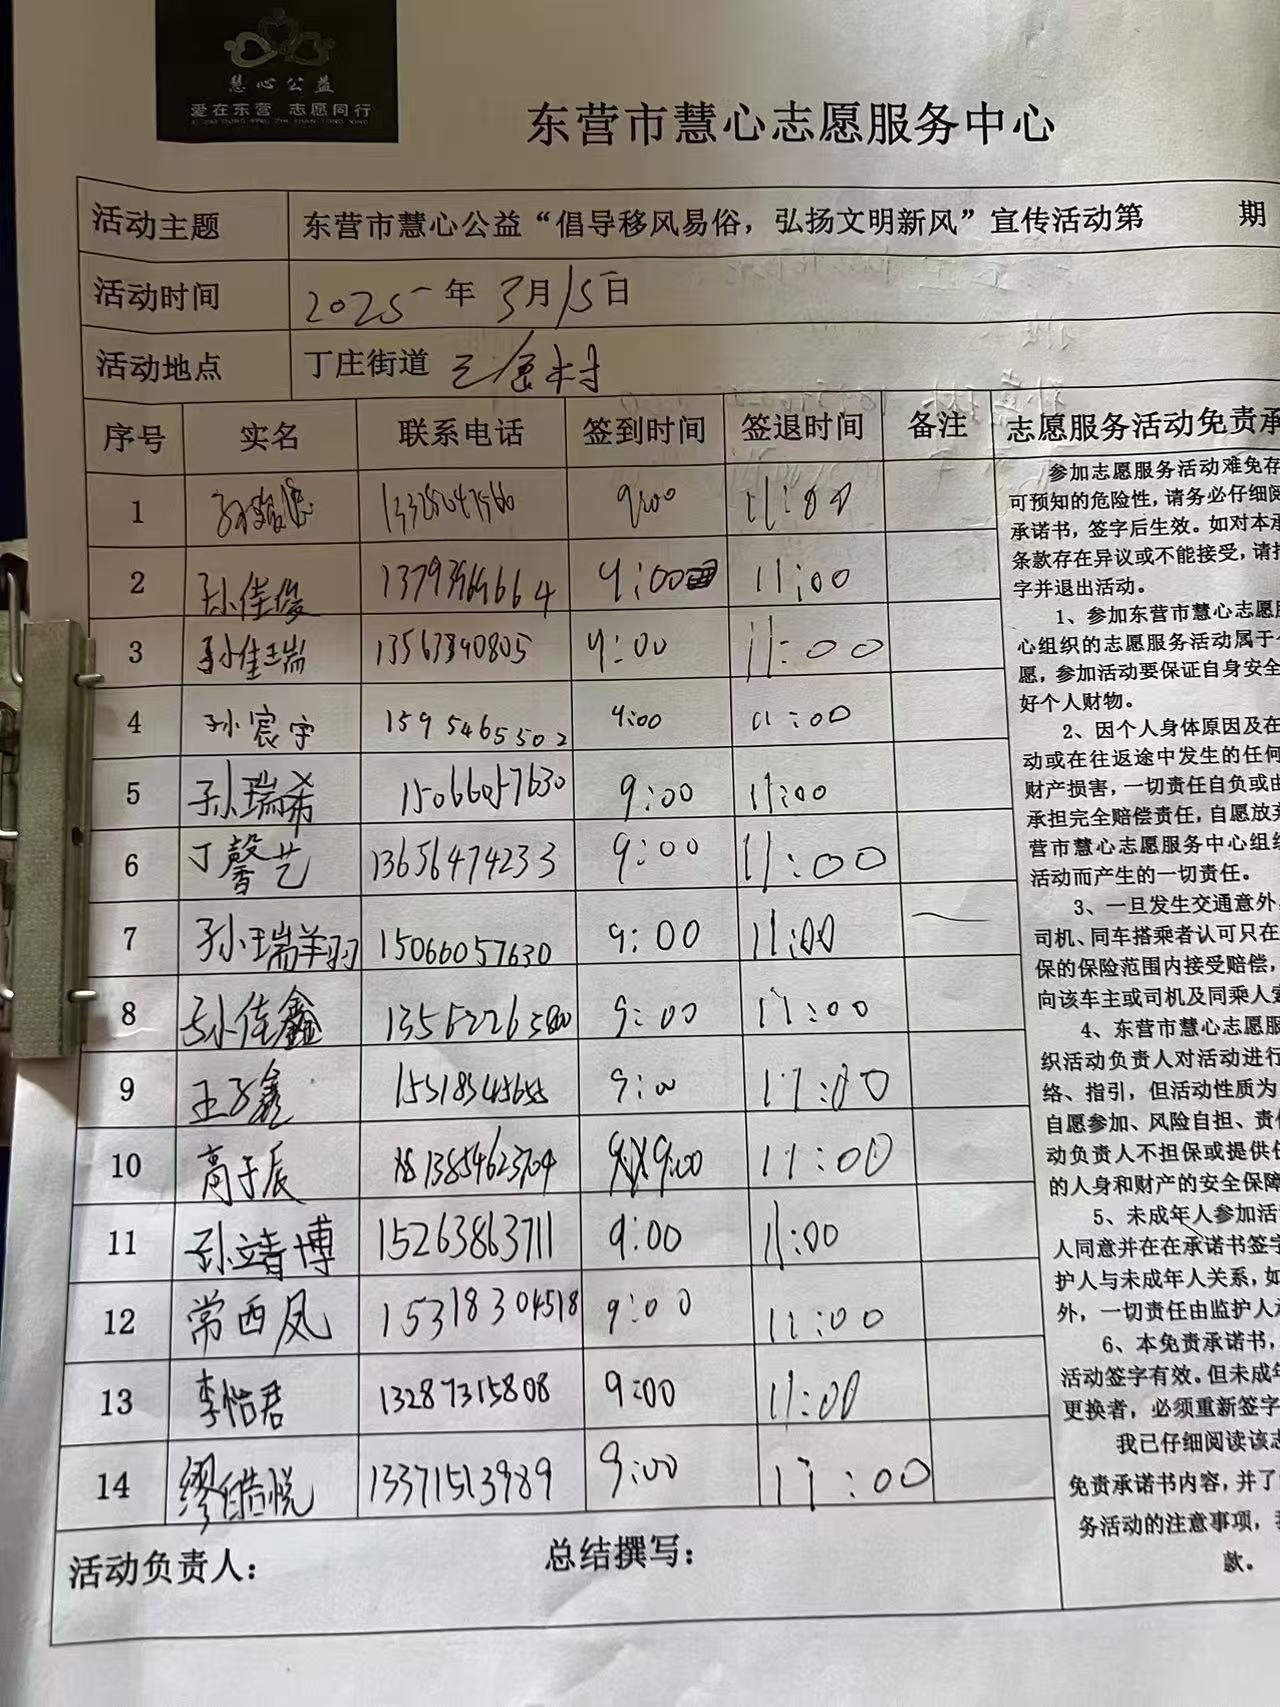 慧心公益
爱在东营 志愿同行
东营市慧心志愿服务中心
活动主题 东营市慧心公益“倡导移风易俗，弘扬文明新风”宣传活动第 期
活动时间 2025年 3月15日
活动地点 丁庄街道 村
序号 实名 联系电话 签到时间 签退时间 备注
1 9:00 11:00
2 孙佳俊 9:00 11:00
3 孙佳瑞 13563840805 9:00 11:00
4 孙宸宇 15954655502 9:00 11:00
5 孙瑞希 15066057630 9:00 11:00
6 丁馨艺 13656474233 9:00 11:00
7 孙瑞翔 15066057630 9:00 11:00
8 孙佳鑫 9:00 11:00
9 王子鑫 9:00 11:00
10 高于辰 13854623704 9:00 11:00
11 孙靖博 15263863711 9:00 11:00
12 常西凤 15318304518 9:00 11:00
13 李怡君 13287315808 9:00 11:00
14 缪皓悦 13371513989 9:00 11:00
活动负责人： 总结撰写：
志愿服务活动免责承
参加志愿服务活动难免存
可预知的危险性，请务必仔细阅
承诺书，签字后生效。如对本承
条款存在异议或不能接受，请拒
字并退出活动。
1、参加东营市慧心志愿服
心组织的志愿服务活动属于个
愿，参加活动要保证自身安全
好个人财物。
2、因个人身体原因及在
动或在往返途中发生的任何
财产损害，一切责任自负或由
承担完全赔偿责任，自愿放弃
营市慧心志愿服务中心组织
活动而产生的一切责任。
3、一旦发生交通意外，
司机、同车搭乘者认可只在
保的保险范围内接受赔偿，
向该车主或司机及同乘人索
4、东营市慧心志愿服
织活动负责人对活动进行
络、指引，但活动性质为
自愿参加、风险自担、责任
动负责人不担保或提供任
的人身和财产的安全保障
5、未成年人参加活动
人同意并在在承诺书签字
护人与未成年人关系，如
外，一切责任由监护人承
6、本免责承诺书，
活动签字有效。但未成年
更换者，必须重新签字
我已仔细阅读该志
免责承诺书内容，并了
务活动的注意事项，我
款。